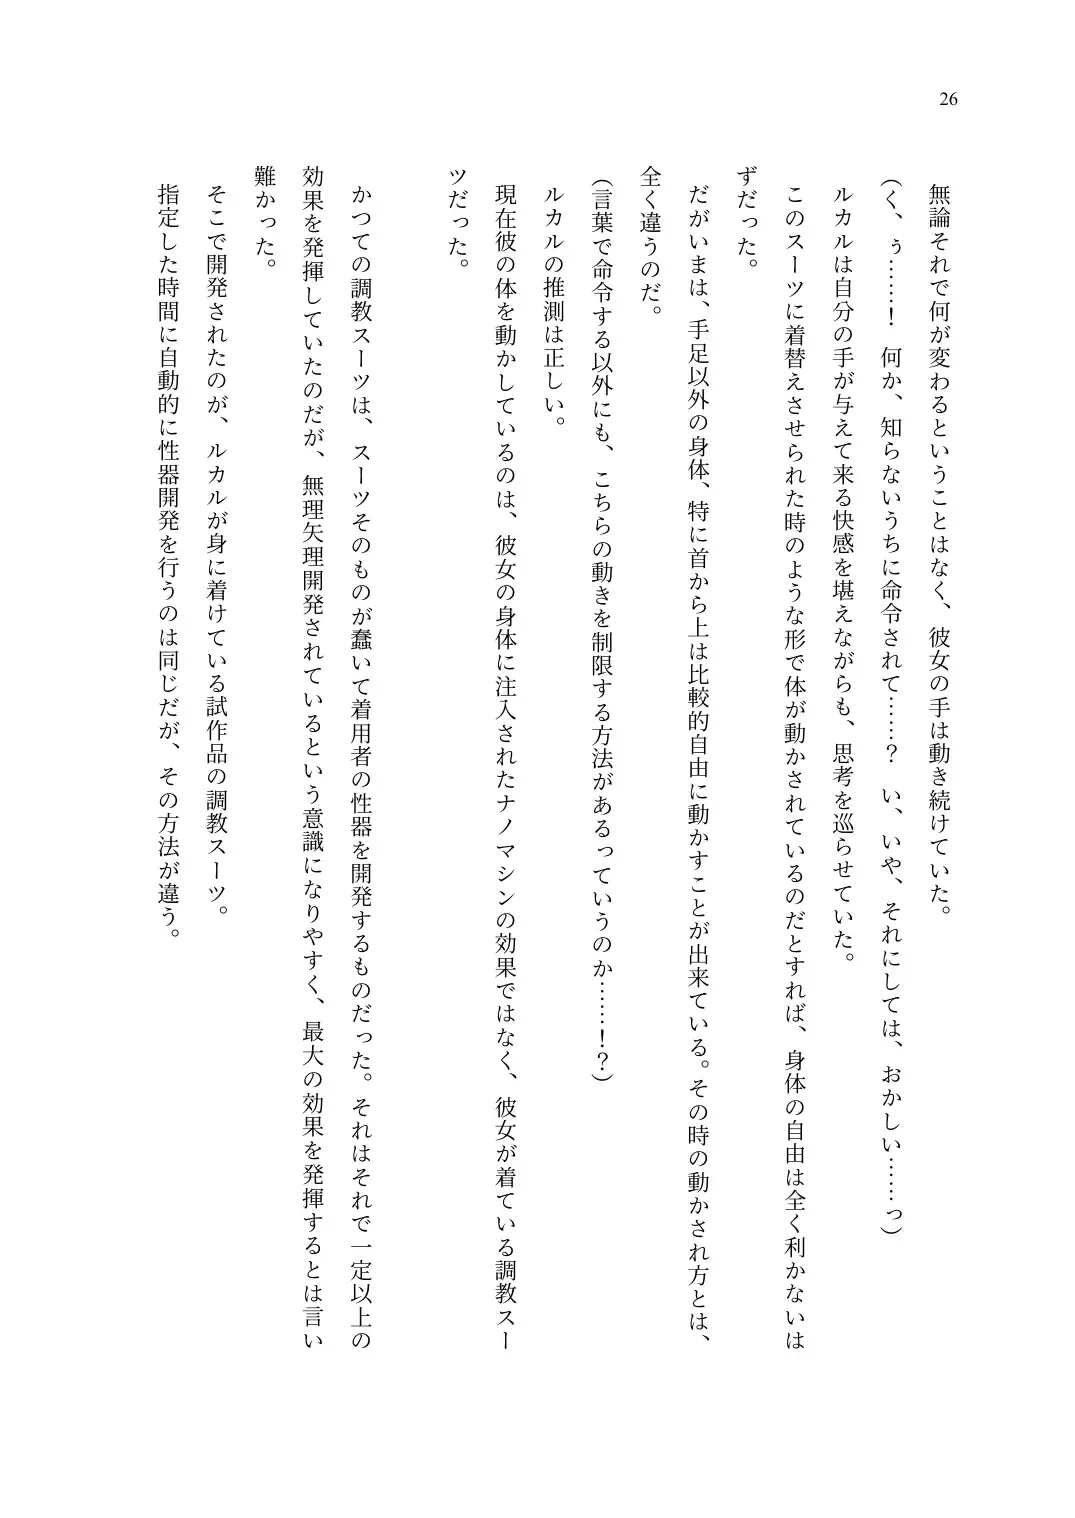 26
無論それで何が変わるということはなく、彼女の手は動き続けていた。
（く、ぅ……！　何か、知らないうちに命令されて……？　い、いや、それにしては、おかしい……っ）
ルカルは自分の手が与えて来る快感を堪えながらも、思考を巡らせていた。
このスーツに着替えさせられた時のような形で体が動かされているのだとすれば、身体の自由は全く利かないは
ずだった。
だがいまは、手足以外の身体、特に首から上は比較的自由に動かすことが出来ている。その時の動かされ方とは、
全く違うのだ。
（言葉で命令する以外にも、こちらの動きを制限する方法があるっていうのか……！？）
ルカルの推測は正しい。
現在彼の体を動かしているのは、彼女の身体に注入されたナノマシンの効果ではなく、彼女が着ている調教スー
ツだった。
かつての調教スーツは、スーツそのものが蠢いて着用者の性器を開発するものだった。それはそれで一定以上の
効果を発揮していたのだが、無理矢理開発されているという意識になりやすく、最大の効果を発揮するとは言い
難かった。
そこで開発されたのが、ルカルが身に着けている試作品の調教スーツ。
指定した時間に自動的に性器開発を行うのは同じだが、その方法が違う。